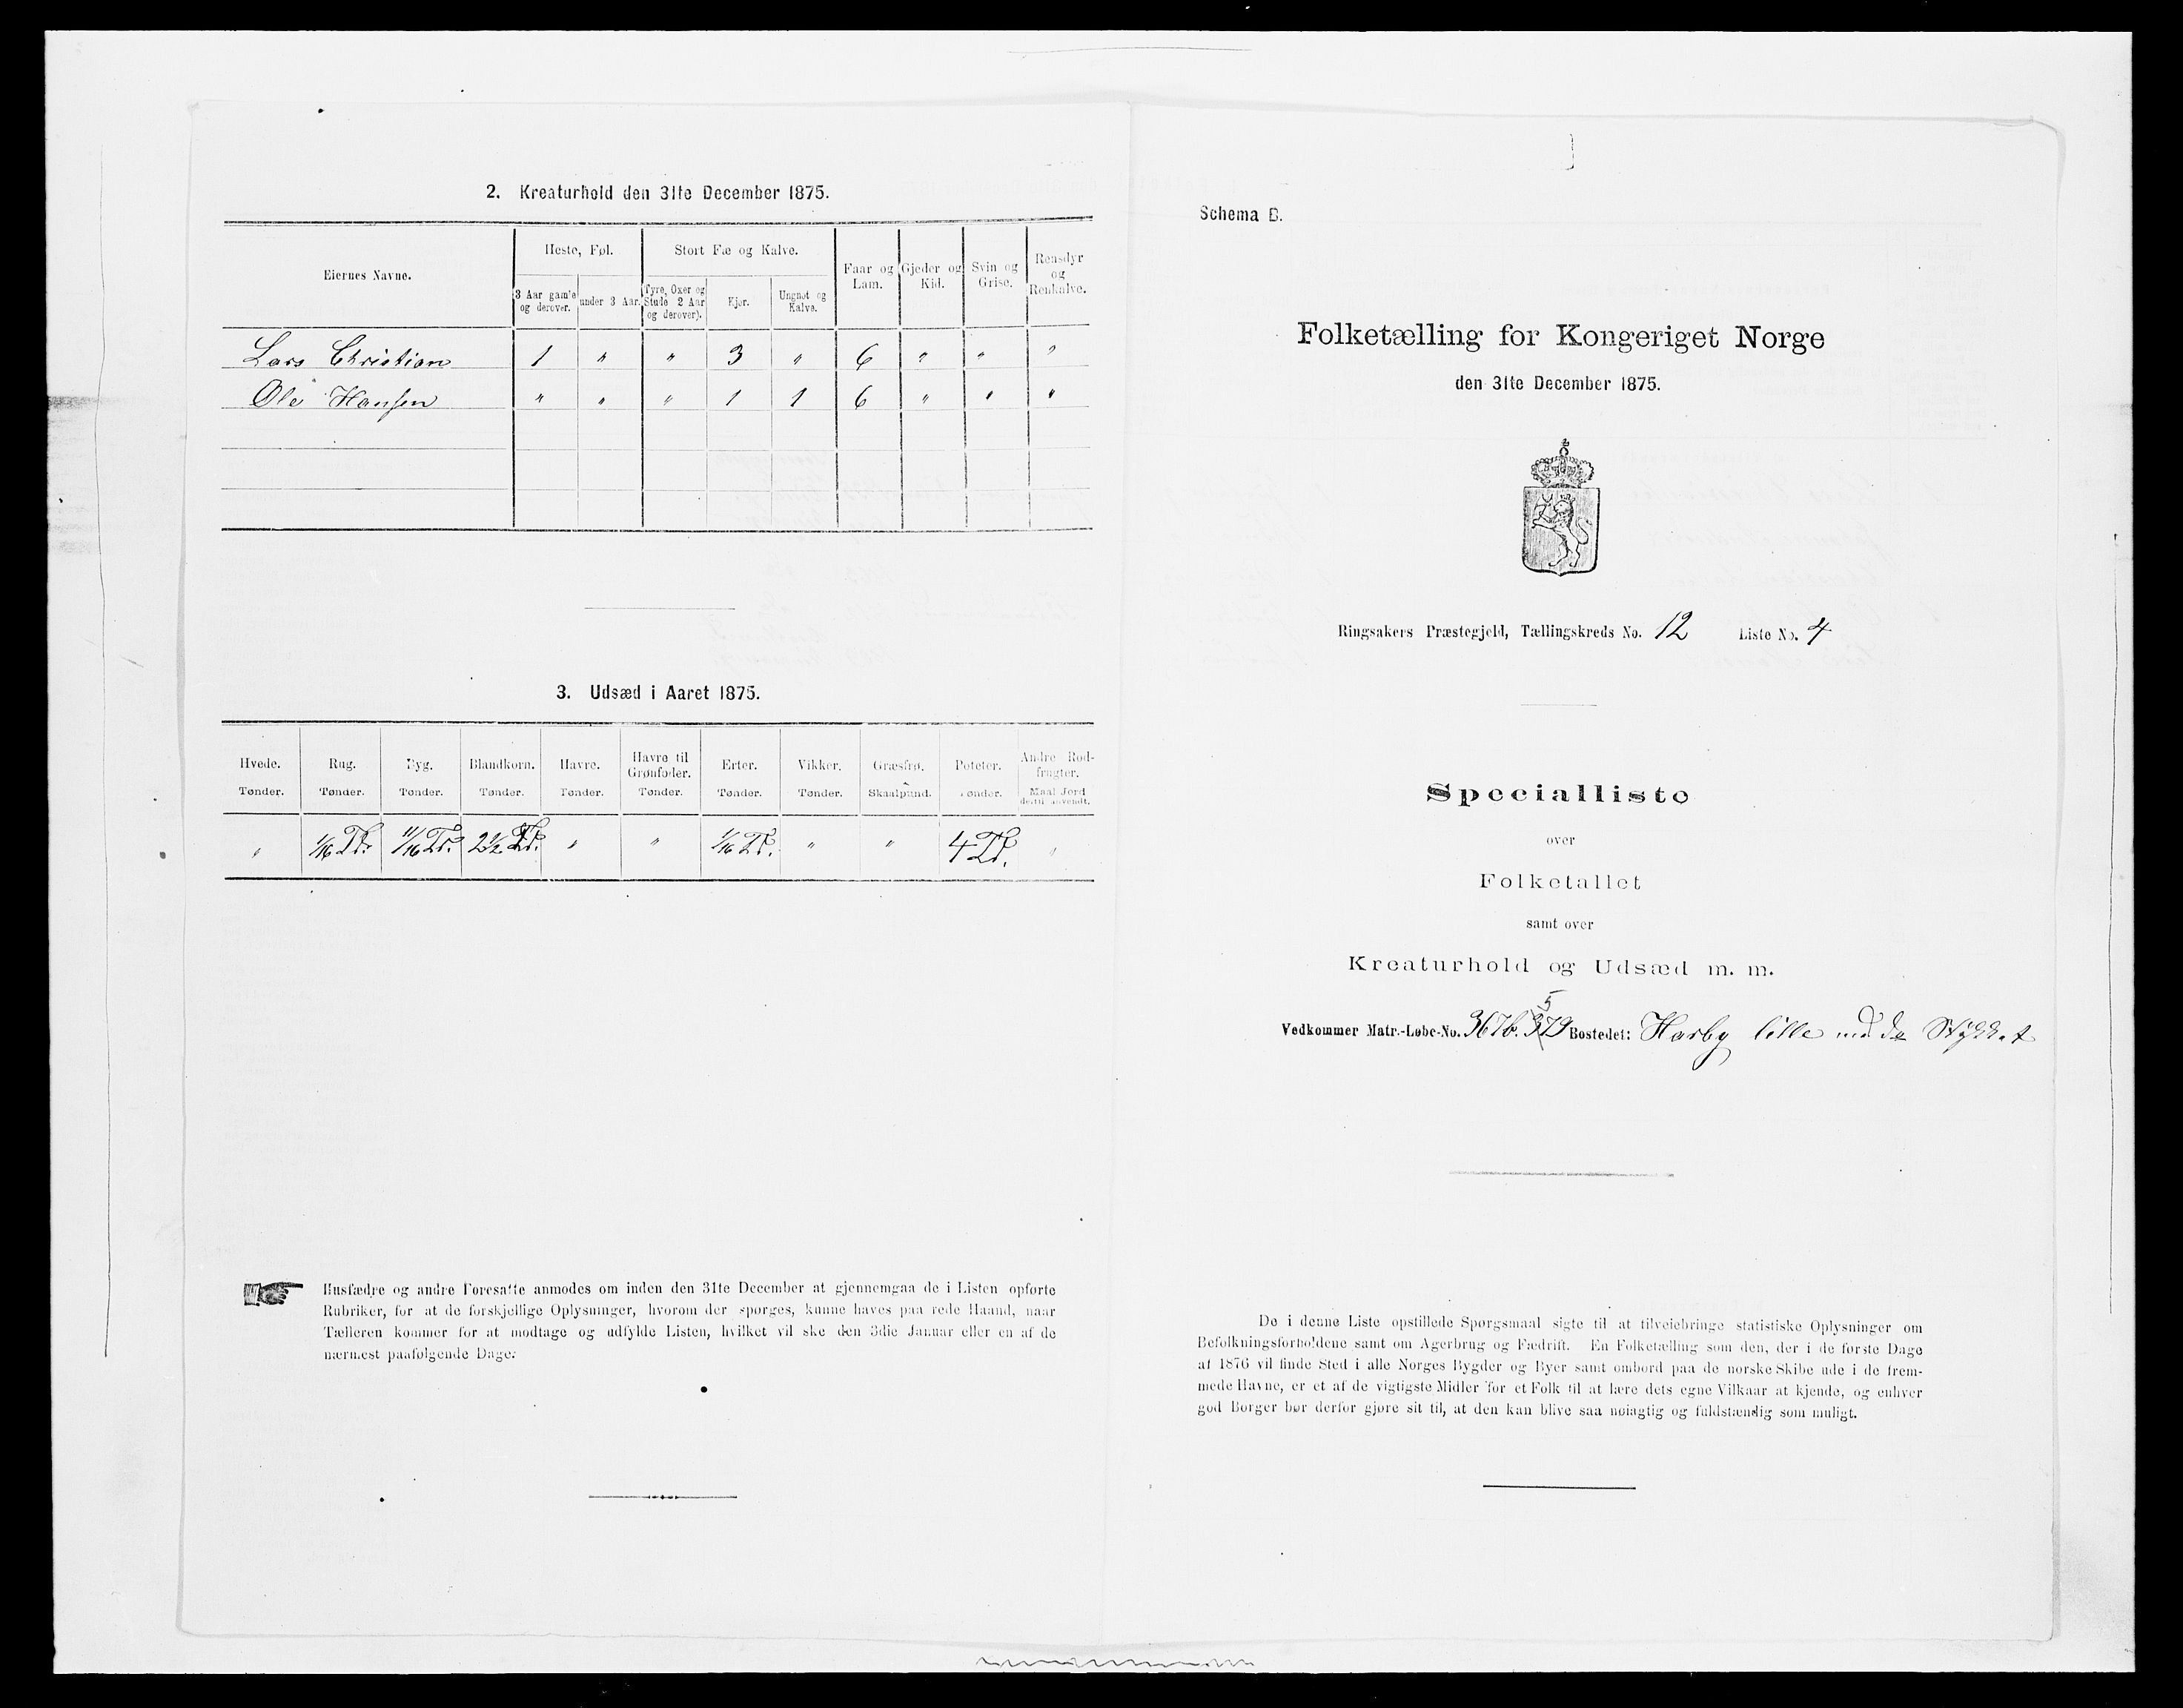 2. Kreaturhold den 31te December 1875.
Eiernes Navne.
Heste, Føl.
Stort Fæ og Kalve.
Faar og Lam.
Gjeder og Kid.
Svin og Grise.
Rensdyr og Renkalve.
3 Aar gamle og derover.
under 3 Aar.
Tyre, Oxer og Stude 2 Aar og derover).
Kjør.
Ungnøt og Kalve.
Lars Christian 1 " " 3 " 6 " " "
Ole Hansen " " " 1 1 6 " " "
3. Udsæd i Aaret 1875.
Hvede. Rug. Byg. Blandkorn. Havre. Havre til Grønfoder. Erter. Vikker. Græsfrø. Poteter. Andre Rodfrugter.
Tønder. Tønder. Tønder. Tønder. Tønder. Tønder. Tønder. Tønder. Skaalpund. Tønder. Maal Jord dertil anvendt.
" 1/16 Td. 11/16 Td. 2 1/2 Td. " " 1/16 Td. " " 4 Td. "
Husfædre og andre Foresatte anmodes om inden den 31te December at gjennemgaa de i Listen opførte
Rubriker, for at de forskjellige Oplysninger, hvorom der spørges, kunne haves paa rede Haand, naar
Tælleren kommer for at modtage og udfylde Listen, hvilket vil ske den 3die Januar eller en af de
nærmest paafølgende Dage.
Schema B.
Folketælling for Kongeriget Norge
den 31te December 1875.
Ringsakers Præstegjeld, Tællingskreds No. 12 Liste No. 4
Specialliste
over
Folketallet
samt over
Kreaturhold og Udsæd m. m.
5
Vedkommer Matr.-Løbe-No. 367b. 379 Bostedet: Harby lille med Stykket
De i denne Liste opstillede Spørgsmaal sigte til at tilveiebringe statistiske Oplysninger om
Befolkningsforholdene samt om Agerbrug og Fædrift. En Folketælling som den, der i de første Dage
af 1876 vil finde Sted i alle Norges Bygder og Byer samt ombord paa de norske Skibe ude i de frem-
mede Havne, er et af de vigtigste Midler for et Folk til at lære dets egne Vilkaar at kjende, og enhver
god Borger bør derfor gjøre sit til, at den kan blive saa nøiagtig og fuldstændig som muligt.